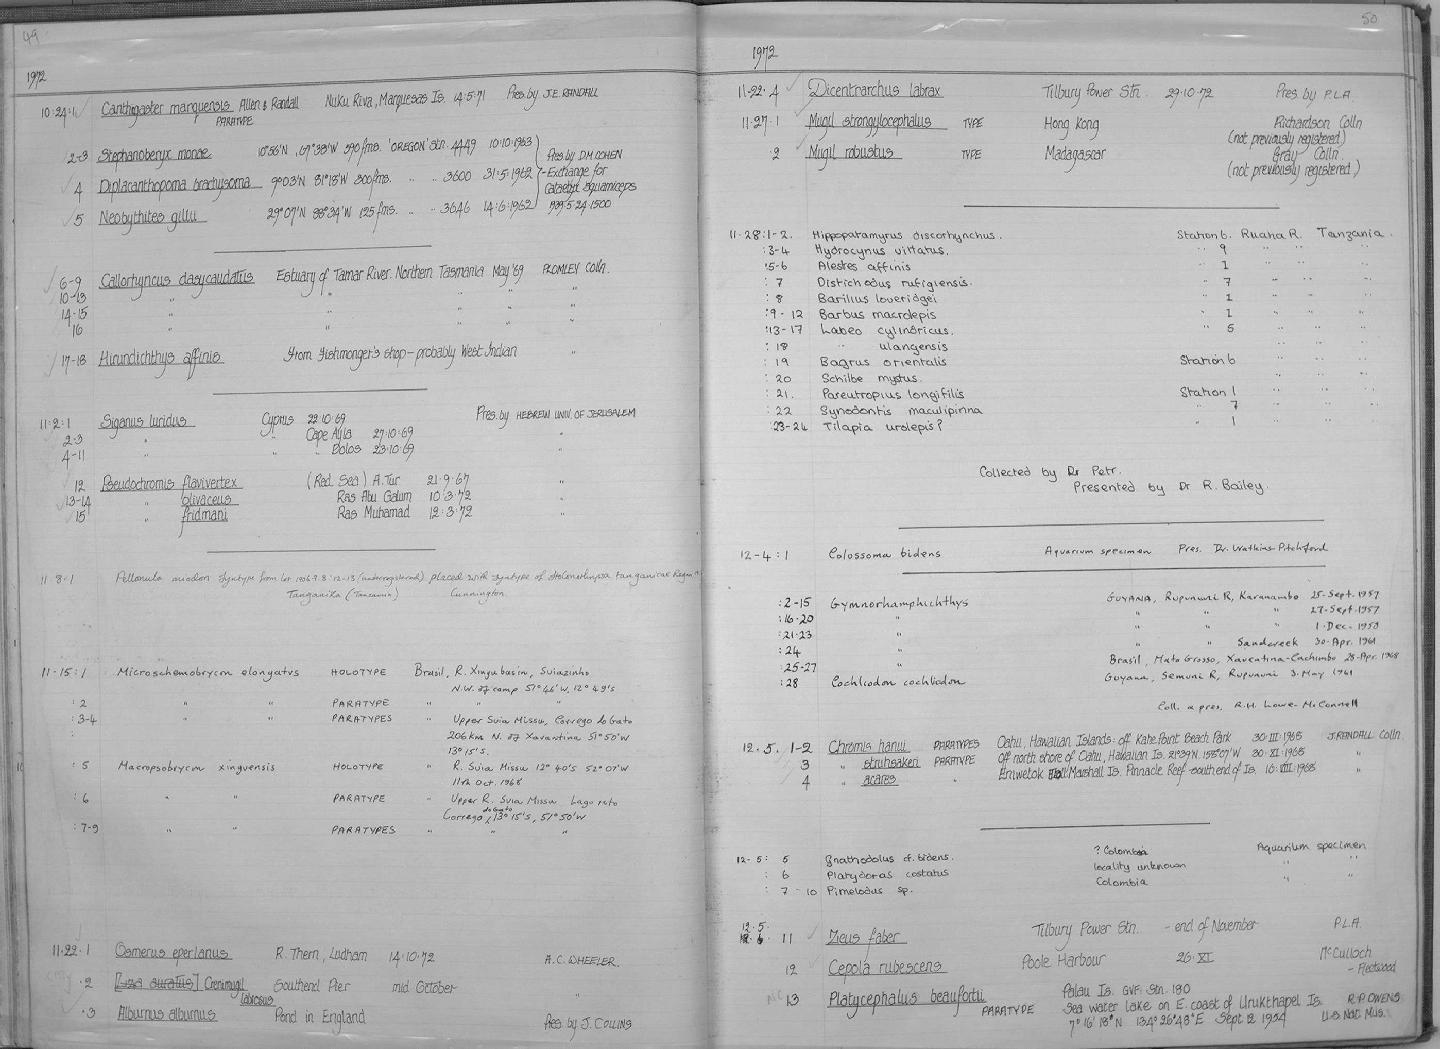 49
1972
10·24·1 Canthigaster marquensis Allen & Randall Nuku Riva, Marquesas Is. 14·5·71 Pres. by J.E. RANDALL
PARATYPE
2-3 Stephanoberyx monae 10°56'N, 67°38'W 390 fms. 'OREGON' Stn. 4449 10·10·1963 Pres by D.M COHEN
4 Diplacanthopoma brachysoma 9°03'N 81°18'W 300 fms. " " 3600 31·5·1962 - Exchange for
Cataetyx squamiceps
5 Neobythites gillii 29°07'N 88°34'W 125 fms. " " 3646 14·6·1962 1939·5·24·1500
6-9 Callorhyncus dasycaudatus Estuary of Tamar River. Northern Tasmania May '69 PLOMLEY Colln.
10-13 " " " " "
14-15 " " " " "
16 " " " " "
17-18 Hirundichthys affinis From fishmonger's shop - probably West Indian "
11·2·1 Siganus luridus Cyprus 22·10·69 Pres. by HEBREW UNIV. OF JERUSALEM
2-3 " " Cape 27·10·69 "
4-11 " " Bolos 23·10·69 "
12 Pseudochromis flavivertex (Red Sea) A. Tur 21·9·67 "
13-14 " olivaceus Ras Abu Galum 10·3·72 "
15 " fridmani Ras Muhamad 12·3·72 "
11·8·1 Pellonula miodon Syntype from lot 1906·9·8:12-13 (underregistered) placed with syntype of Stolothrissa tanganicae Regan
Tanganika (Tanzania) Cunnington
11-15:1 Microschemobrycon elongatus HOLOTYPE Brasil, R. Xingu basin, Suiazinho
N.W. of camp 51°46'W, 12°49'S
:2 " " PARATYPE " "
:3-4 " " PARATYPES Upper Suia Missu, Corrego do Gato
: 206km N. of Xavantina 51°50'W
13°15'S.
:5 Macropsobrycon xinguensis HOLOTYPE R. Suia Missu 12°40'S 52°07'W
11th Oct. 1968
:6 " " PARATYPE " Upper R. Suia Missu Lago
do Gato
Corrego, 13°15'S, 51°50'W
:7-9 " " PARATYPES " " "
11·22·1 Osmerus eperlanus R. Thern, Ludham 14·10·72 A.C. WHEELER.
·2 [Liza auratus] Crenimugil Southend Pier mid October "
labrosus
·3 Alburnus alburnus Pond in England Pres. by J. COLLINS
50
1972
11·22·4 Dicentrarchus labrax Tilbury Power Stn. 29·10·72 Pres. by P.L.A.
11·27·1 Mugil strongylocephalus TYPE Hong Kong Richardson Colln
(not previously registered)
·2 Mugil robustus TYPE Madagascar Gray Colln.
(not previously registered)
11·28:1-2. Hippopotamyrus discorhynchus. Station 6. Ruaha R. Tanzania.
:3-4 Hydrocynus vittatus. " 9 " " "
:5-6 Alestes affinis " 1 " " "
:7 Distichodus rufigiensis. " 7 " "
:8 Barilius loveridgei " 1 " " "
:9-12 Barbus macrolepis " 1 " " "
:13-17 Labeo cylindricus. " 5 " " "
:18 " ulangensis " " "
:19 Bagrus orientalis Station 6 " " "
:20 Schilbe mystus. " " "
:21. Pareutropius longifilis Station 1 " " "
:22 Synodontis maculipinna " 7 " " "
:23-24 Tilapia urolepis? " 1 " " "
Collected by Dr Petr.
Presented by Dr R. Bailey.
12-4:1 Colossoma bidens Aquarium specimen Pres. Dr. Watkins-Pitchford
:2-15 Gymnorhamphichthys GUYANA, Rupununi R, Karanambo 25-Sept. 1957
:16-20 " " " " 27-Sept. 1957
:21-23 " " " " 1-Dec. 1958
:24 " " " Sandcreek 30-Apr. 1961
:25-27 " Brasil, Mato Grosso, Xavantina-Cachimbo 28-Apr. 1968
:28 Cochliodon cochliodon Guyana, Semuni R, Rupununi 3-May 1961
Coll. & pres. R.H. Lowe-McConnell
12.5.1-2 Chromis hanui PARATYPES Oahu, Hawaiian Islands: off Kahe Point Beach Park 30·III·1968 J. RANDALL Colln.
3 " struhsakeri PARATYPE off north shore of Oahu, Hawaiian Is. 21°39'N, 158°07'W 30·XI·1968 "
4 " acares " Eniwetok Atoll Marshall Is. Pinnacle Reef - south end of Is. 16·VIII·1968 "
12-5: 5 Gnathodolus cf. bidens. ? Colombia Aquarium specimen
:6 Platydoras costatus locality unknown " "
:7-10 Pimelodus sp. Colombia " "
12·5·
12·6· 11 Zeus faber Tilbury Power Stn. - end of November P.L.A.
12 Cepola rubescens Poole Harbour 26·XI McCulloch
- Fleetwood
13 Platycephalus beaufortii Palau Is. GVF. Stn. 180
PARATYPE Sea water lake on E. coast of Urukthapel Is. R.P. OWENS
7°16'18"N 134°26'48"E Sept 12 1954 U.S. Nat. Mus.